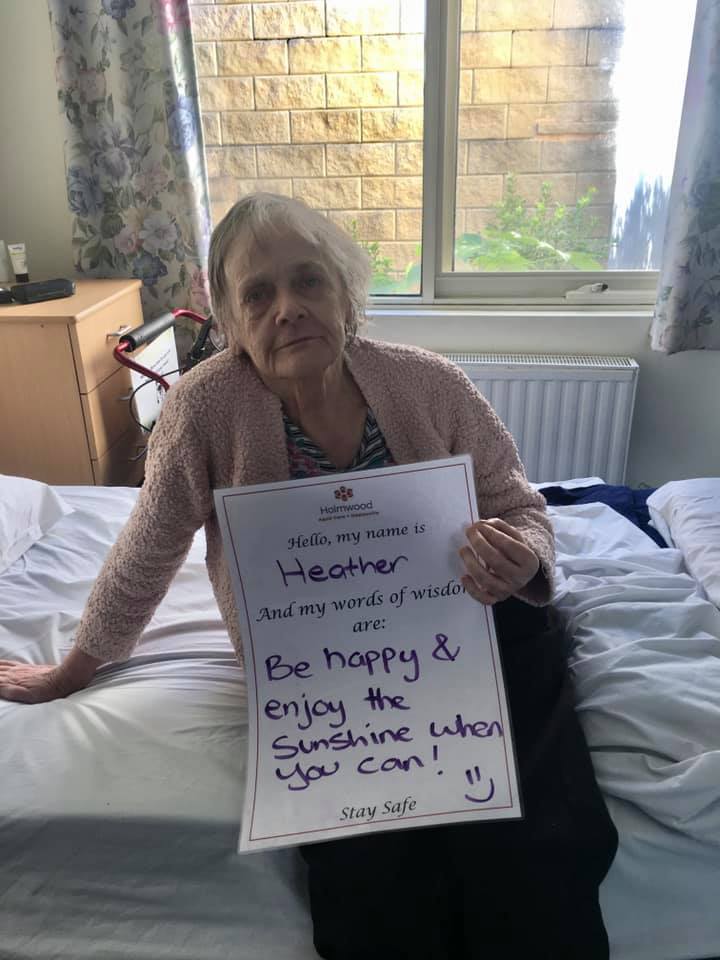 Holmwood
Aged Care • Healesville
Hello, my name is
Heather
And my words of wisdom
are:
Be happy &
enjoy the
Sunshine when
you can!
Stay Safe